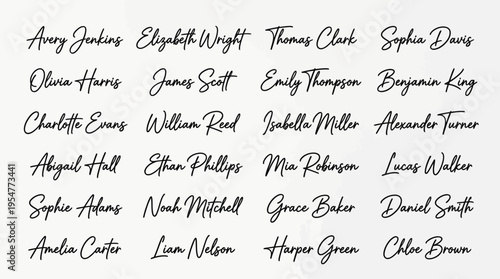 Avery Jenkins Elizabeth Wright Thomas Clark Sophia Davis
Olivia Harris James Scott Emily Thompson Benjamin King
Charlotte Evans William Reed Isabella Miller Alexander Turner
Abigail Hall Ethan Phillips Mia Robinson Lucas Walker
Sophie Adams Noah Mitchell Grace Baker Daniel Smith
Amelia Carter Liam Nelson Harper Green Chloe Brown
Adobe Stock | #1954773441